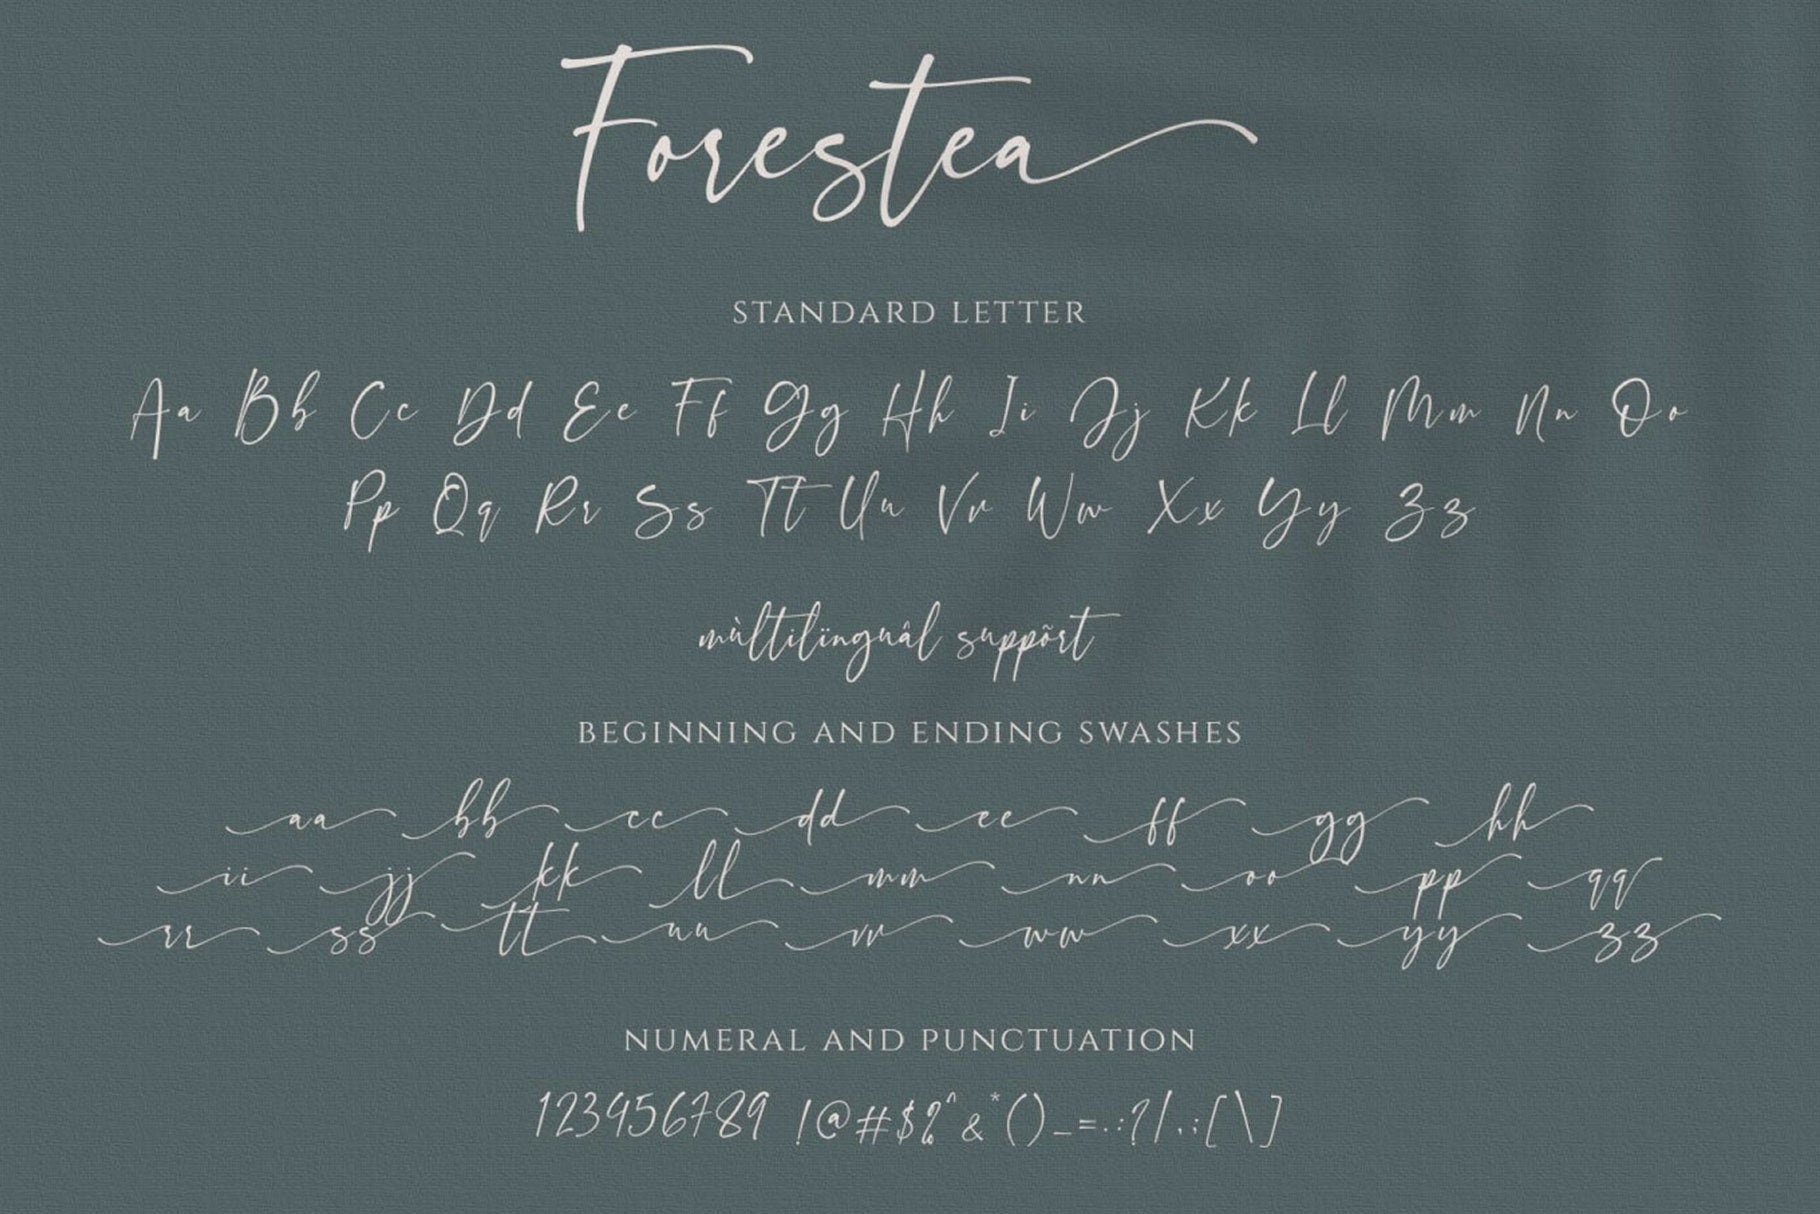 Forestea
STANDARD LETTER
Aa Bb Cc Dd Ee Ff Gg Hh Ii Jj Kk Ll Mm Nn Oo
Pp Qq Rr Ss Tt Uu Vv Ww Xx Yy Zz
mùltilïnguâl suppõrt
BEGINNING AND ENDING SWASHES
aa bb cc dd ee ff gg hh
ii jj kk ll mm nn oo pp qq
rr ss tt uu vv ww xx yy zz
NUMERAL AND PUNCTUATION
123456789 !@#$%^&*()_=.:?/,;[\]